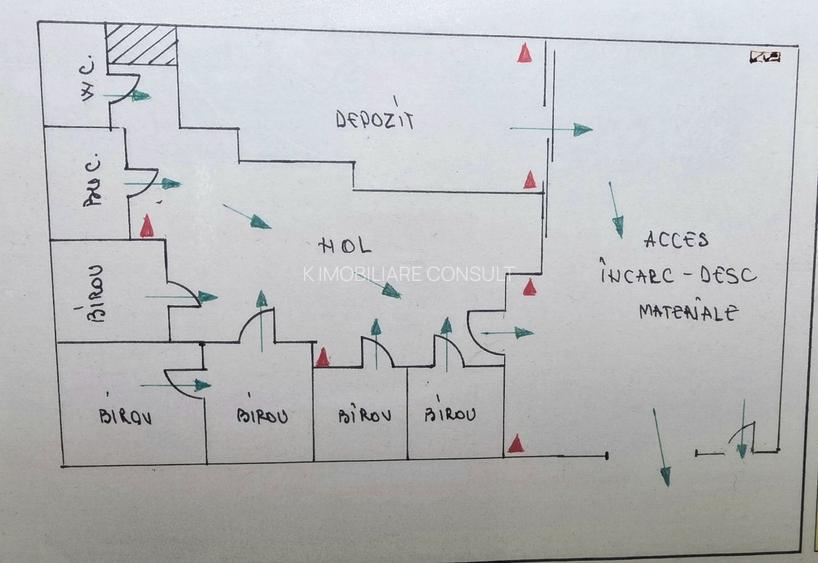 W.C.
DEPOZIT
BUC.
ACCES
ÎNCARC - DESC
MATERIALE
HOL
K IMOBILIARE CONSULT
BIROU
BIROU
BIROU
BIROU
BIROU